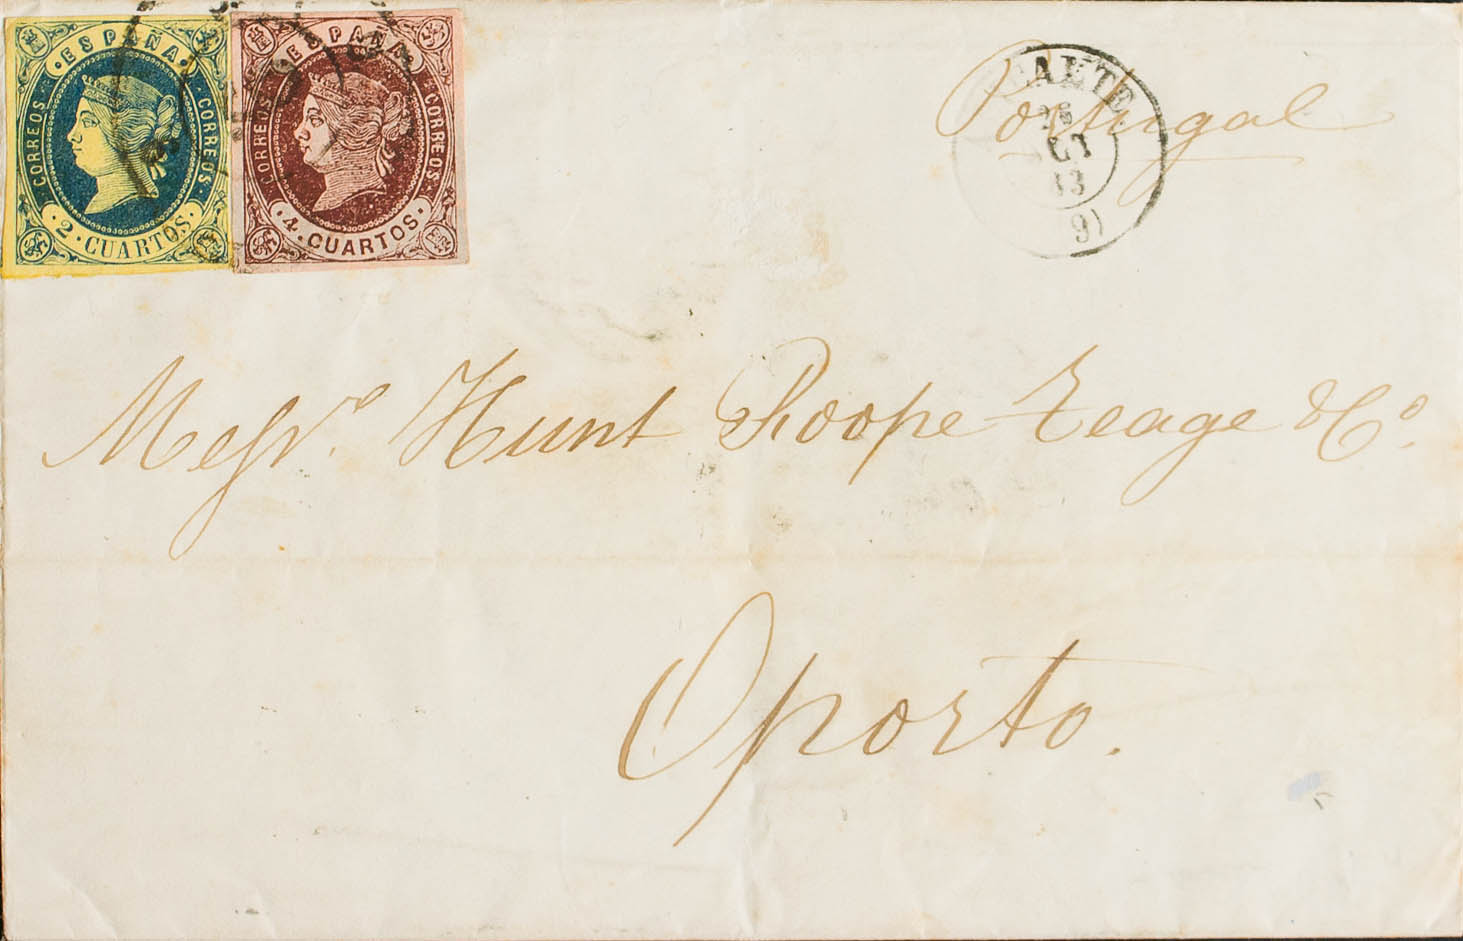 · ESPAÑA ·
CORREOS
CORREOS
· 2 · CUARTOS ·
· ESPAÑA ·
CORREOS
CORREOS
· 4 · CUARTOS ·
Portugal
(9)
Messrs. Hunt Roope Teage & Co.
Oporto.